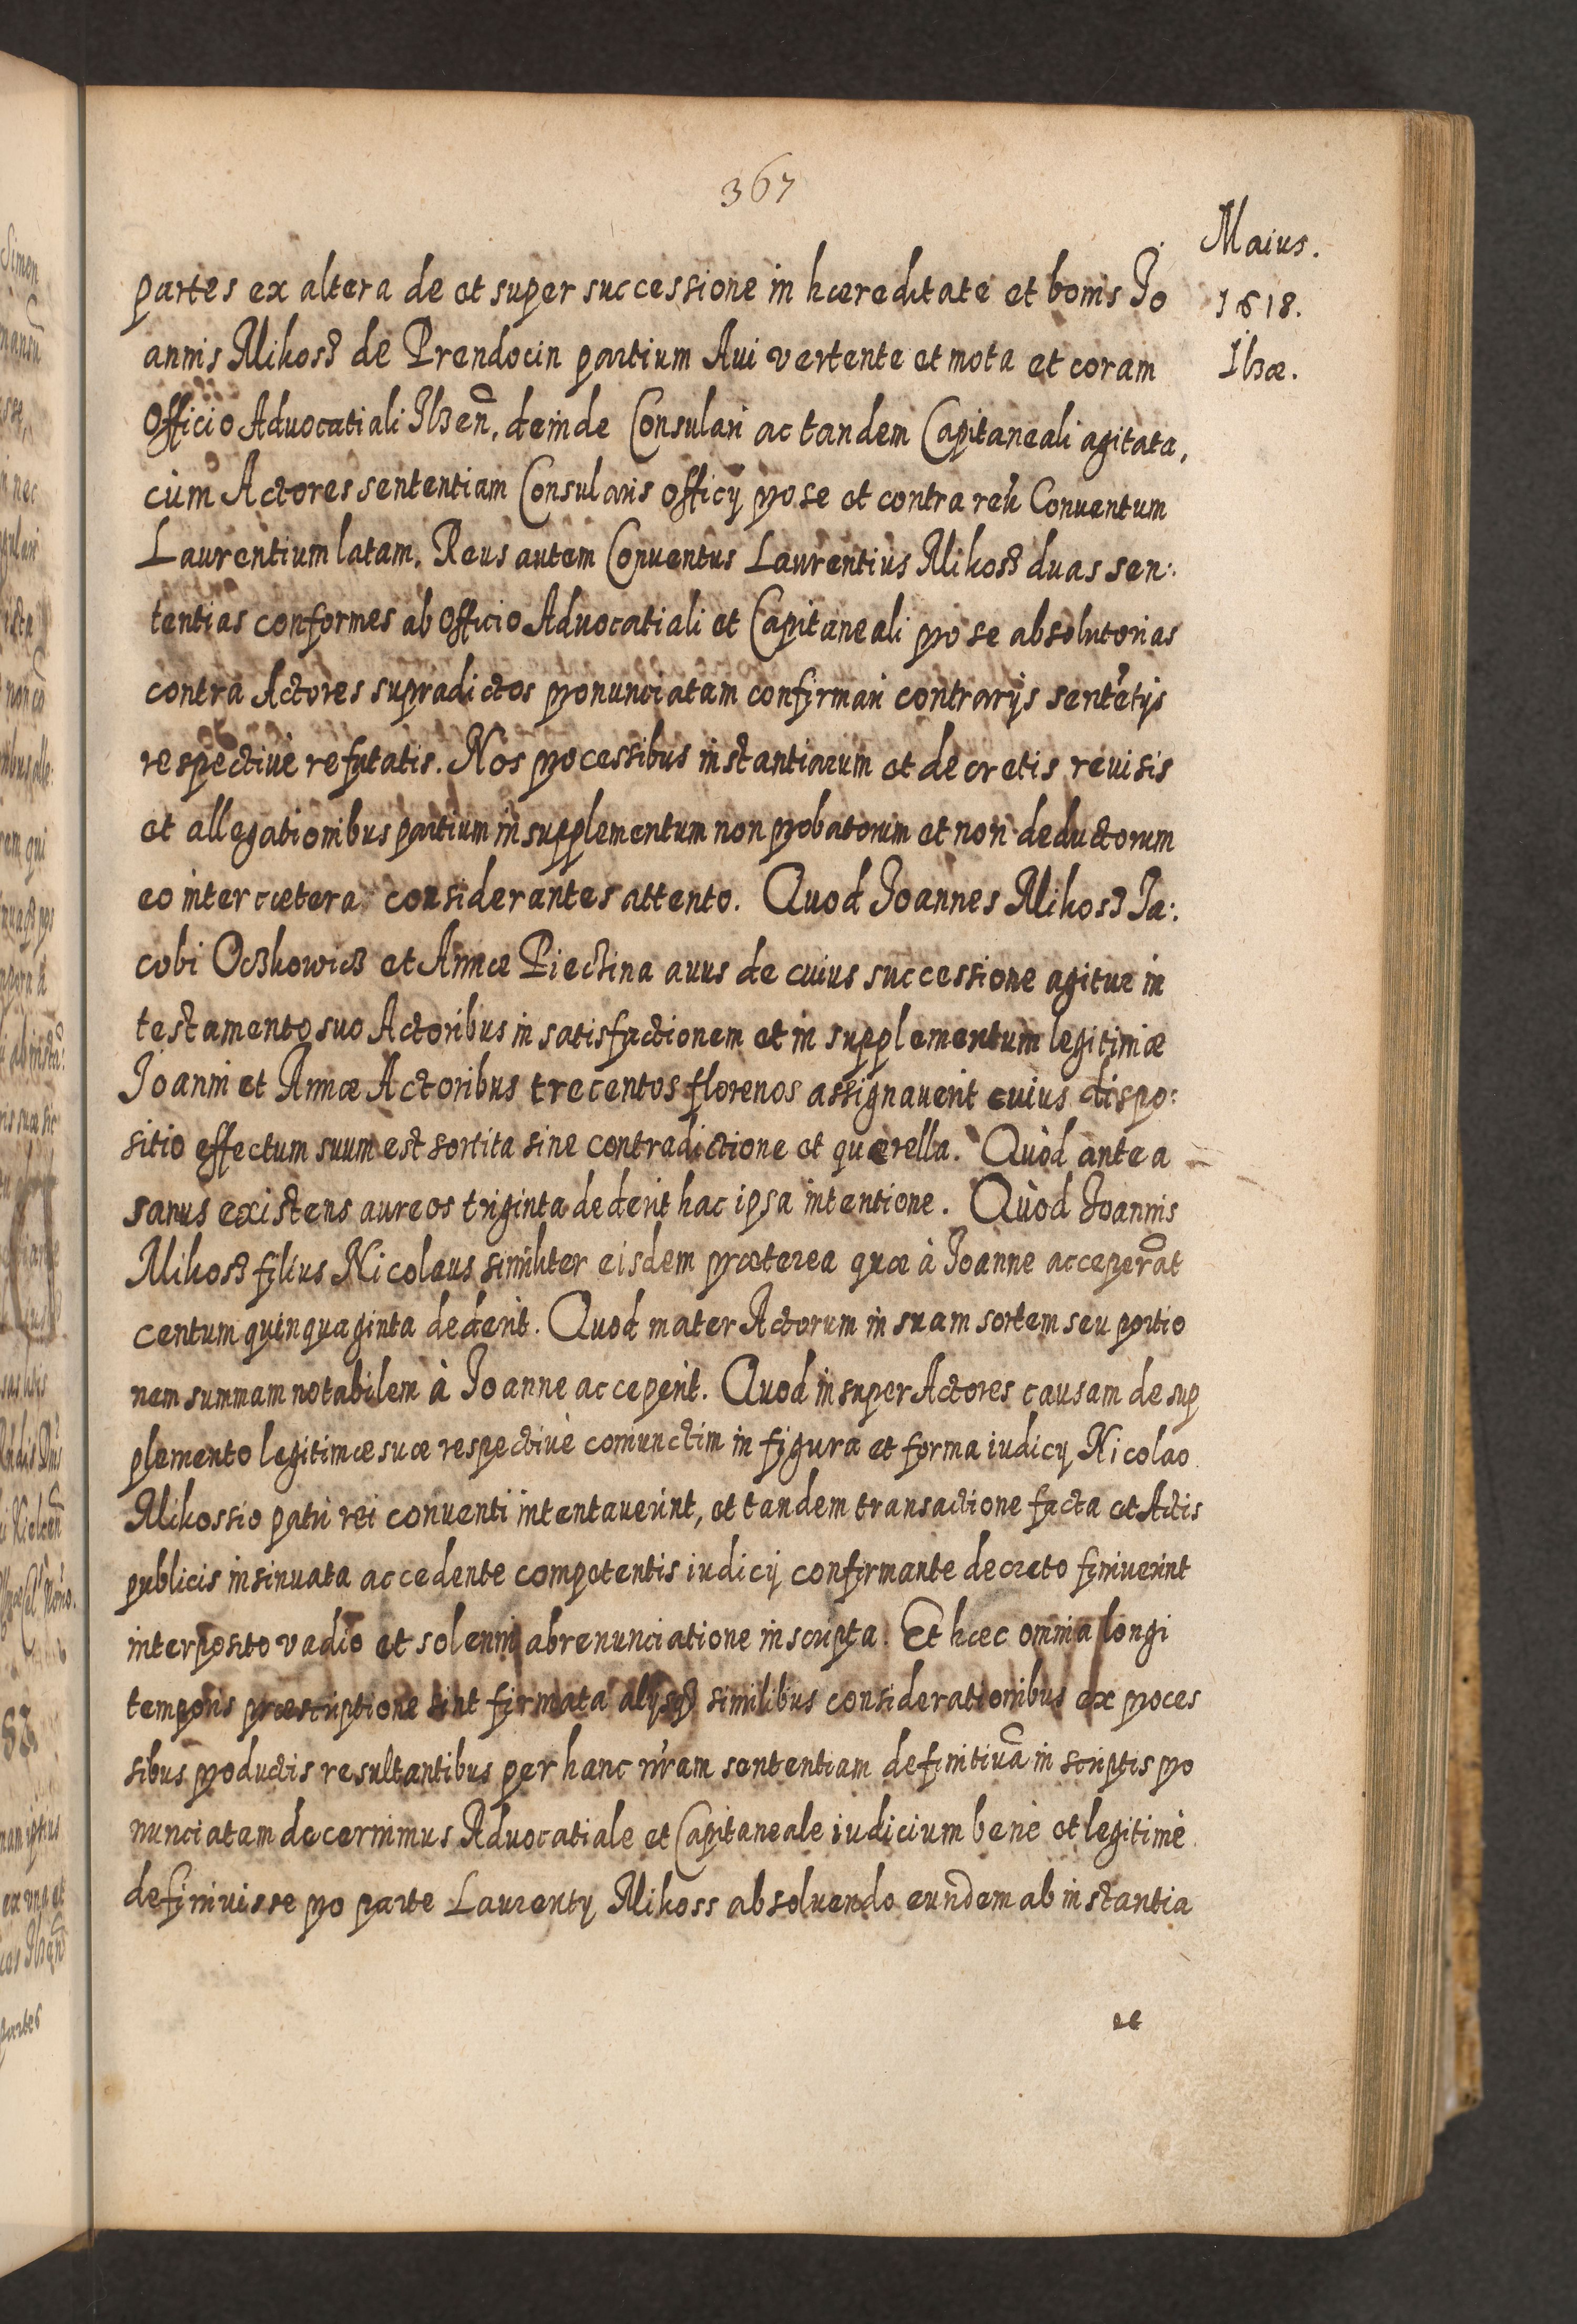 367
Maius.
1618.
Ilzæ.
partes ex altera de et super successione in hæreditate et bonis Jo
annis Mikosz de Prendocin partium Aui vertente et mota et coram
Officio Aduocatiali Ilzen̄, deinde Consulari ac tandem Capitaneali agitata,
cùm Actores sententiam Consularis officÿ pro se et contra reū Conuentum
Laurentium latam. Reus autem Conuentus Laurentius Mikosz duas sen:
tentias conformes ab Officio Aduocatiali et Capitaneali pro se absolutorias
contra Actores supradictos pronunciatam confirmari contrarÿs sentētÿs
respectiuè refutatis. Nos processibus instantiarum et decretis reuisis
et allegationibus partium in supplementum non probatorum et non deductorum
eo inter cætera considerantes attento. Quod Joannes Mikosz Ja:
cobi Oczkowicz et Annæ Piectina auus de cuius successione agitur in
testamento suo Actoribus in satisfactionem et in supplementum legitimæ
Joanni et Annæ Actoribus trecentos florenos assignauerit cuius dispo:
sitio effectum suum est sortita sine contradictione et quærella. Quòd antea
sanus existens aureos triginta dederit hac ipsa intentione. Quòd Joannis
Mikosz filius Nicolaus similiter eisdem præterea quæ à Joanne acceperāt
centum quinquaginta dederit. Quod mater Actorum in suam sortem seu portio
nem summam notabilem à Joanne acceperit. Quod insuper Actores causam de sup
plemento legitimæ suæ respectiuè coniunctim in figura et forma iudicÿ Nicolao
Mikossio patri rei conuenti intentauerint, et tandem transactione facta et Actis
publicis insinuata accedente competentis iudicÿ confirmante decreto finiuerint
interposito vadio et solenni abrenunciatione inscripta. Et hæc omnia longi
temporis præscriptione sint firmata alÿsq₃ similibus considerationibus ex proces
sibus productis resultantibus per hanc nr̄am sententiam definitiuā in scriptis pro
nunciatam decernimus Aduocatiale et Capitaneale iudicium benè et legitimè
definiuisse pro parte Laurentÿ Mikoss absoluendo eundem ab instantia
et